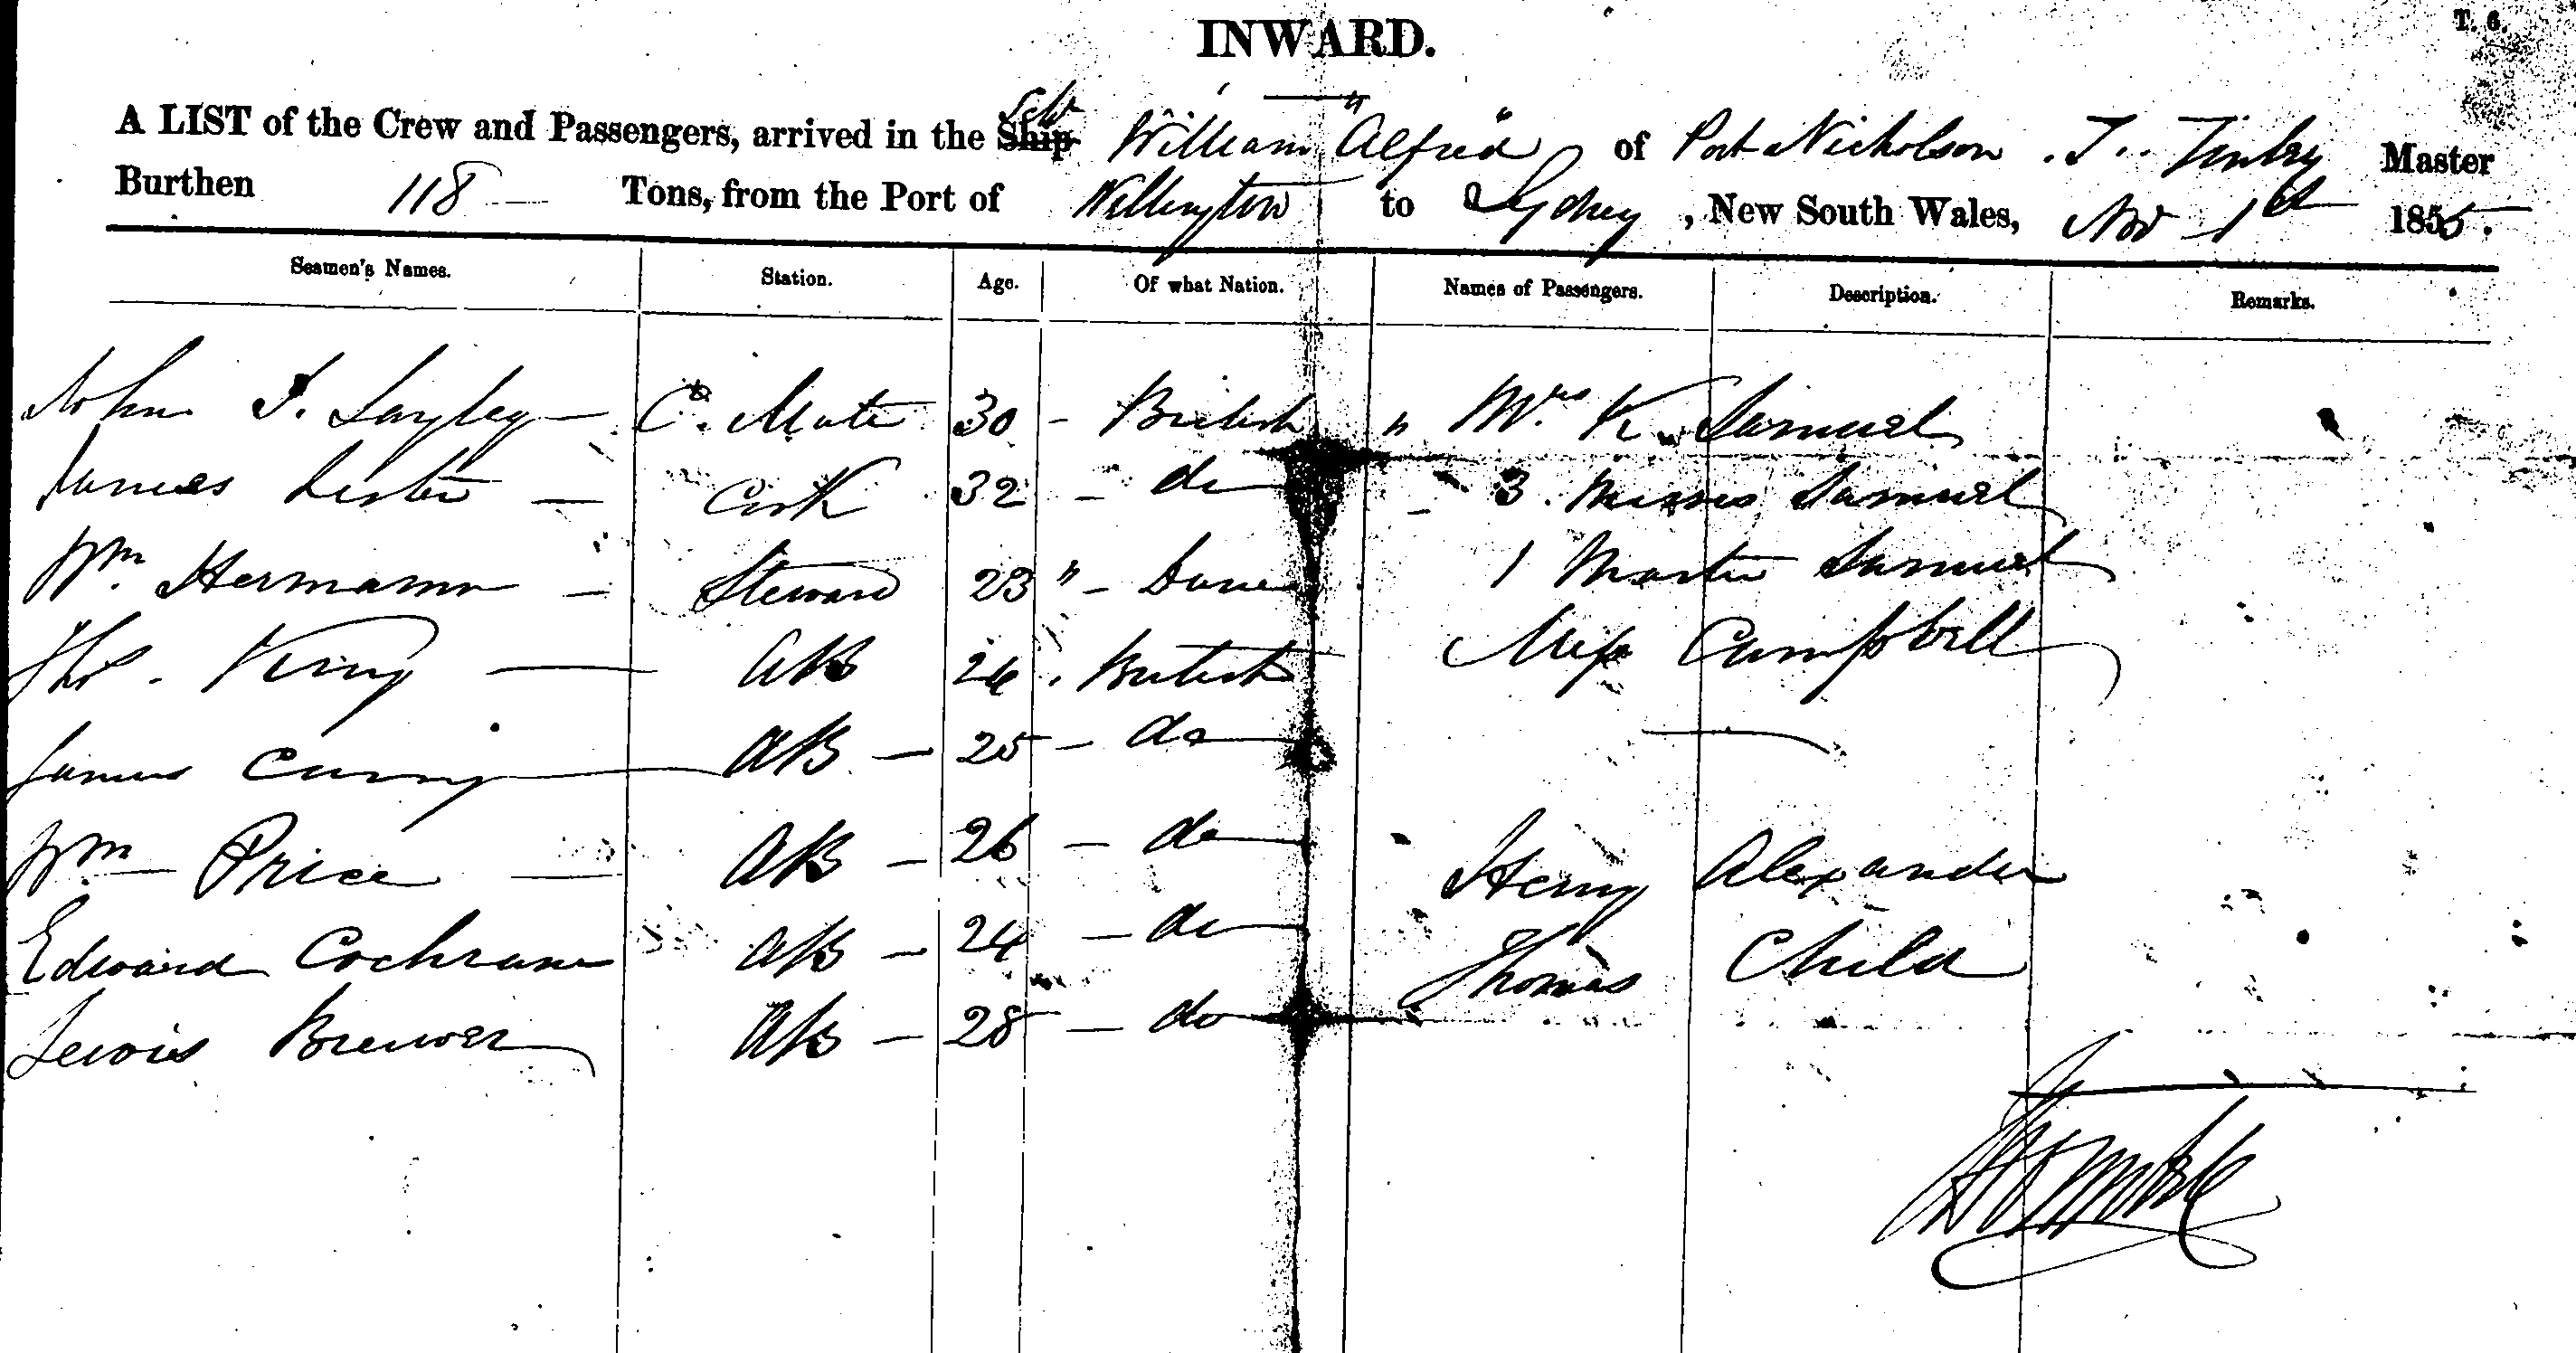 T. 6.
INWARD.
A LIST of the Crew and Passengers, arrived in the Ship Sch "William Alfred" of Port Nicholson . J. Tinley Master
Burthen 118 Tons, from the Port of Wellington to Sydney, New South Wales, Nov 1st 1855.
Seamen's Names. Station. Age. Of what Nation. Names of Passengers. Description. Remarks.
John T. Layley C. Mate 30 - British " Mrs K. Samuel
James Lester — Cook 32 - do - 3. Misses Samuel
Wm. Hermann — Steward 23 " - Dane 1 Master Samuel
Thos. King — AB 24 . British Miss Campbell
James Curry — AB — 25 - do
Wm. Price — AB — 26 — do Henry Alexander
Edward Cochrane AB — 24 — do Thomas Child
Lewis Brewer AB — 28 — do